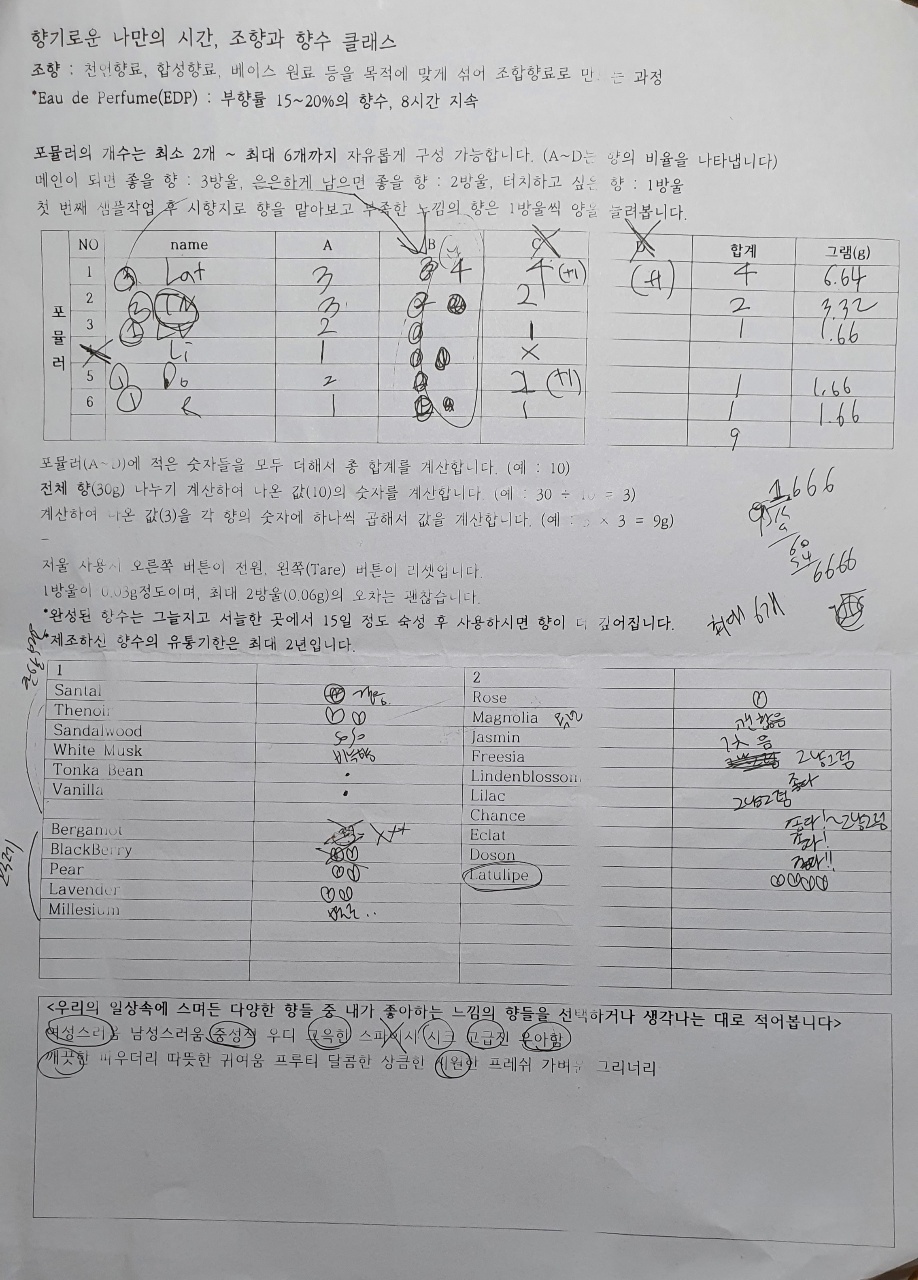 향기로운 나만의 시간, 조향과 향수 클래스
조향 : 천연향료, 합성향료, 베이스 원료 등을 목적에 맞게 섞어 조합향료로 만 는 과정
*Eau de Perfume(EDP) : 부향률 15~20%의 향수, 8시간 지속
포뮬러의 개수는 최소 2개 ~ 최대 6개까지 자유롭게 구성 가능합니다. (A~D는 향의 비율을 나타냅니다)
메인이 되면 좋을 향 : 3방울, 은은하게 남으면 좋을 향 : 2방울, 터치하고 싶은 향 : 1방울
첫 번째 샘플작업 후 시향지로 향을 맡아보고 부족한 느낌의 향은 1방울씩 양을 늘려봅니다.
NO name A B C D 합계 그램(g)
포뮬러
1 ③ Lat 3 3 4 4 (+1) (+1) 4 6.64
2 TN 3 2 2 3.32
3 ① 2 1 1 1.66
Li 1 X
5 Do 2 2 (+1) 1 1.66
6 ① R 1 1 1 1.66
9
포뮬러(A~D)에 적은 숫자들을 모두 더해서 총 합계를 계산합니다. (예 : 10)
전체 향(30g) 나누기 계산하여 나온 값(10)의 숫자를 계산합니다. (예 : 30 ÷ 10 = 3)
계산하여 나온 값(3)을 각 향의 숫자에 하나씩 곱해서 값을 계산합니다. (예 : 3 × 3 = 9g)
1.666
9 15
9
60
54
6666
–
저울 사용시 오른쪽 버튼이 전원, 왼쪽(Tare) 버튼이 리셋입니다.
1방울이 0.03g정도이며, 최대 2방울(0.06g)의 오차는 괜찮습니다.
*완성된 향수는 그늘지고 서늘한 곳에서 15일 정도 숙성 후 사용하시면 향이 더 깊어집니다.
최대 6개
*제조하신 향수의 유통기한은 최대 2년입니다.
1 2
Santal Rose
Thenoir Magnolia 괜찮음
Sandalwood Jasmin
White Musk 비누향 Freesia 그냥그럼
Tonka Bean Lindenblossom 좋다
Vanilla Lilac 그냥그럼
Chance 좋다!~그냥그럼
Bergamot Eclat 좋다!
BlackBerry Doson 좋다!!
Pear Latulipe
Lavender
Millesium
<우리의 일상속에 스며든 다양한 향들 중 내가 좋아하는 느낌의 향들을 선택하거나 생각나는 대로 적어봅니다>
여성스러움 남성스러움 중성적 우디 그윽한 스파이시 시크 고급진 우아함
깨끗한 파우더리 따뜻한 귀여움 프루티 달콤한 상큼한 시원한 프레쉬 가벼운 그리너리